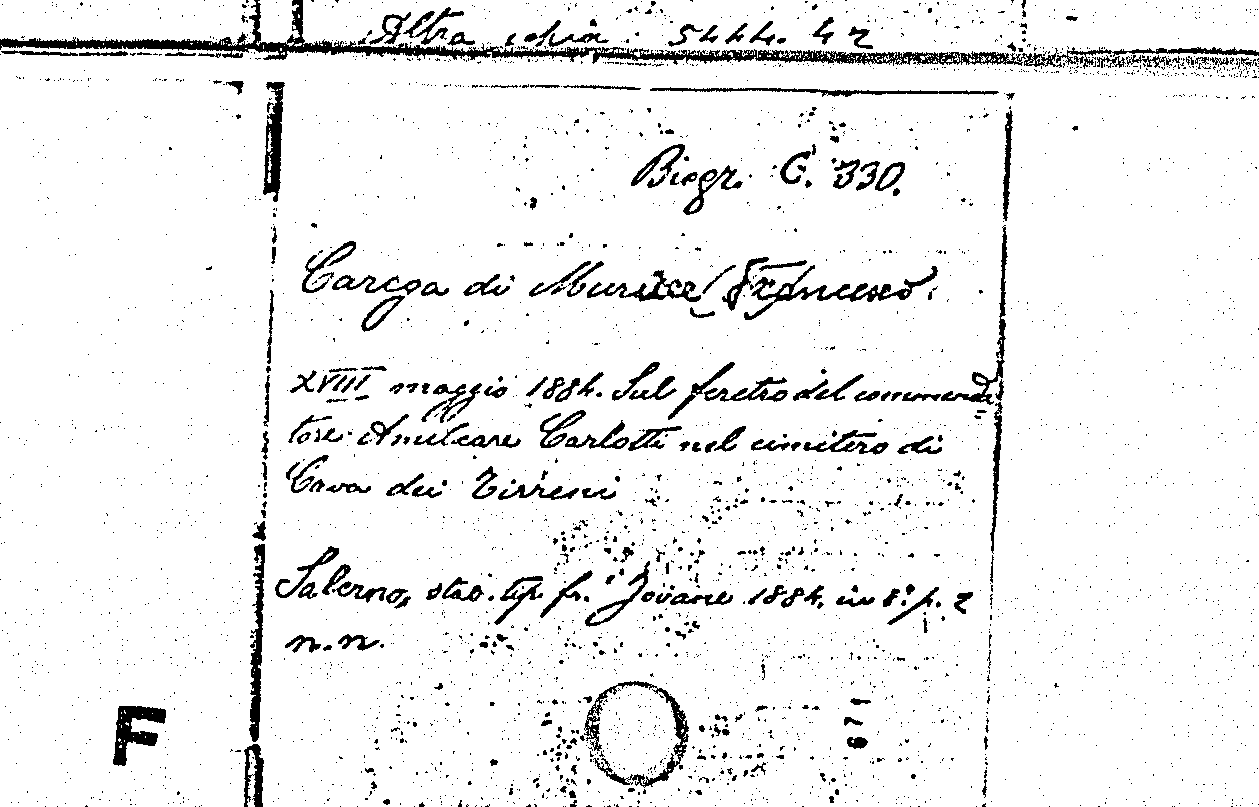 Altra copia: 5444. 42
Biogr. C. 330.
Carega di Muricce (Francesco).
XVIII maggio 1884. Sul feretro del commenda
tore Amilcare Carlotti nel cimitero di
Cava dei Tirreni
Salerno, stab. tip. fr. Jovane 1884, in 8.° p. 2
n.n.
F
671